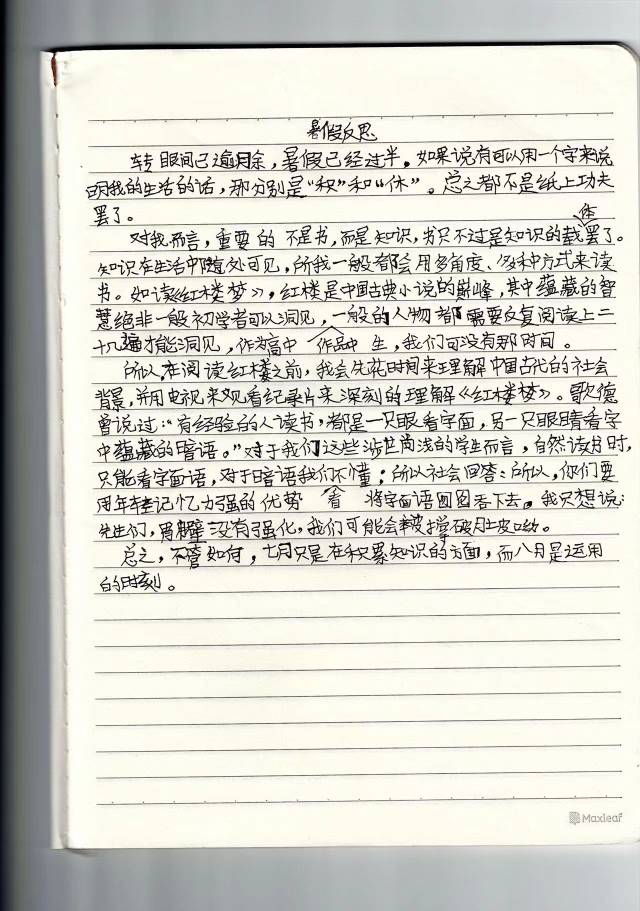 暑假反思
转眼间已逾月余，暑假已经过半。如果说有可以用一个字来说
明我的生活的话，那分别是“积”和“休”。总之都不是纸上功夫
罢了。
对我而言，重要的不是书，而是知识，书只不过是知识的载体罢了。
知识在生活中随处可见，所我一般都会用多角度、多种方式来读
书。如读《红楼梦》，红楼是中国古典小说的巅峰，其中蕴藏的智
慧绝非一般初学者可以洞见，一般的人物都需要反复阅读上二
十几遍才能洞见，作为高中作品中生，我们可没有那时间。
所以，在阅读红楼之前，我会先花时间来理解中国古代的社会
背景，并用电视来观看纪录片来深刻的理解《红楼梦》。歌德
曾说过：“有经验的人读书，都是一只眼看字面，另一只眼睛看字
中蕴藏的暗语。”对于我们这些涉世尚浅的学生而言，自然读书时，
只能看字面语，对于暗语我们不懂；所以社会回答：所以，你们要
用年轻记忆力强的优势着将字面语囫囵吞下去。我只想说：
先生们，胃壁没有强化，我们可能会被撑破肚皮呦。
总之，不管如何，七月只是在积累知识的方面，而八月是运用
的时刻。
Maxleaf